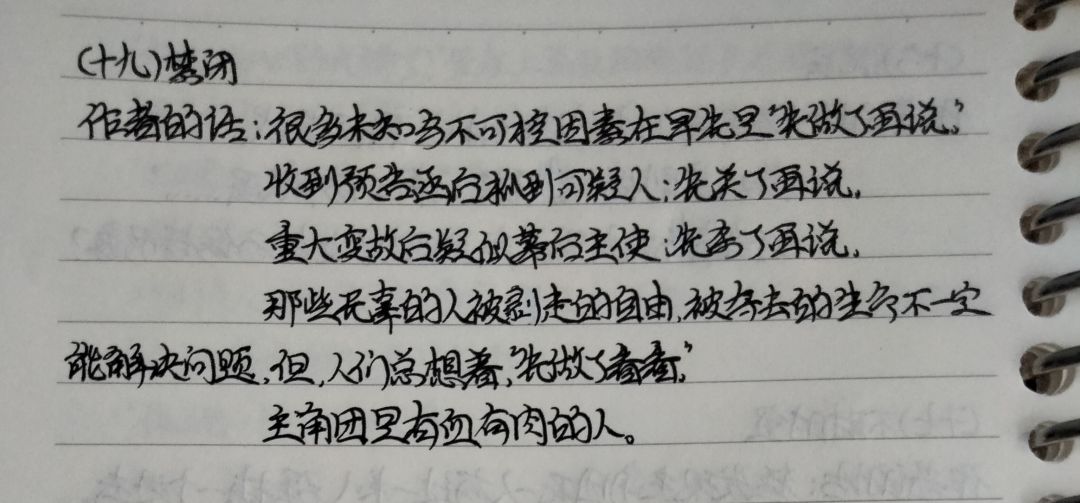 (十九)禁闭
作者的话:很多未知与不可控因素在早先里“先做了再说。”
收到预告函后抓到可疑人:先关了再说。
重大变故后疑似幕后主使:先杀了再说。
那些无辜的人被剥走的自由,被夺去的生命不一定
能解决问题,但,人们总想着,“先做了看看。”
主角团里有血有肉的人。